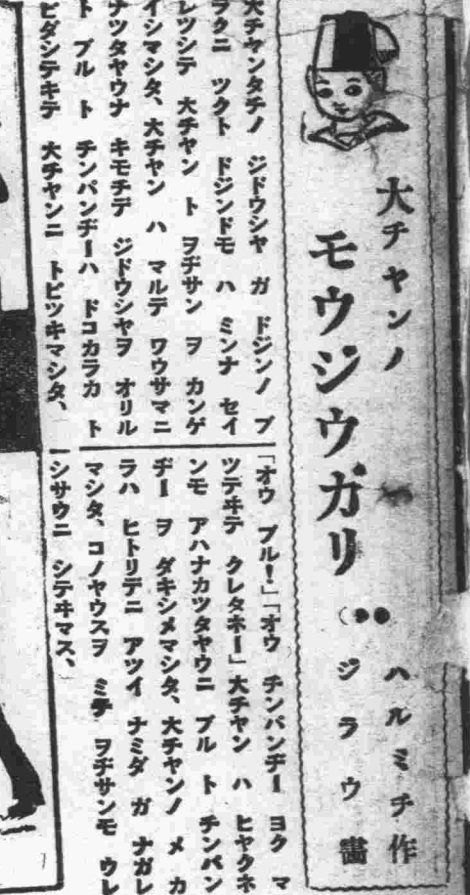 大チヤンノ
モウジウガリ
ハルミチ作
ジラウ畫
大チヤンタチノ ジドウシヤ ガ ドジンノ ブ
ラクニ ツクト ドジンドモ ハ ミンナ セイ
レツシテ 大チヤン ト ヲヂサン ヲ カンゲ
イシマシタ、大チヤン ハ マルデ ワウサマニ
ナツタヤウナ キモチデ ジドウシヤヲ オリル
ト ブル ト チンパンヂーハ ドコカラカ ト
ビダシテキテ 大チヤンニ トビツキマシタ、
「オウ ブル!」「オウ チンパンヂー ヨク マ
ツテヰテ クレタネー」大チヤン ハ ヒヤクネ
ンモ アハナカツタヤウニ ブル ト チンパン
ヂー ヲ ダキシメマシタ、大チヤンノ メ カ
ラハ ヒトリデニ アツイ ナミダ ガ ナガレ
マシタ、コノヤウスヲ ミテ ヲヂサンモ ウレ
シサウニ シテヰマス、